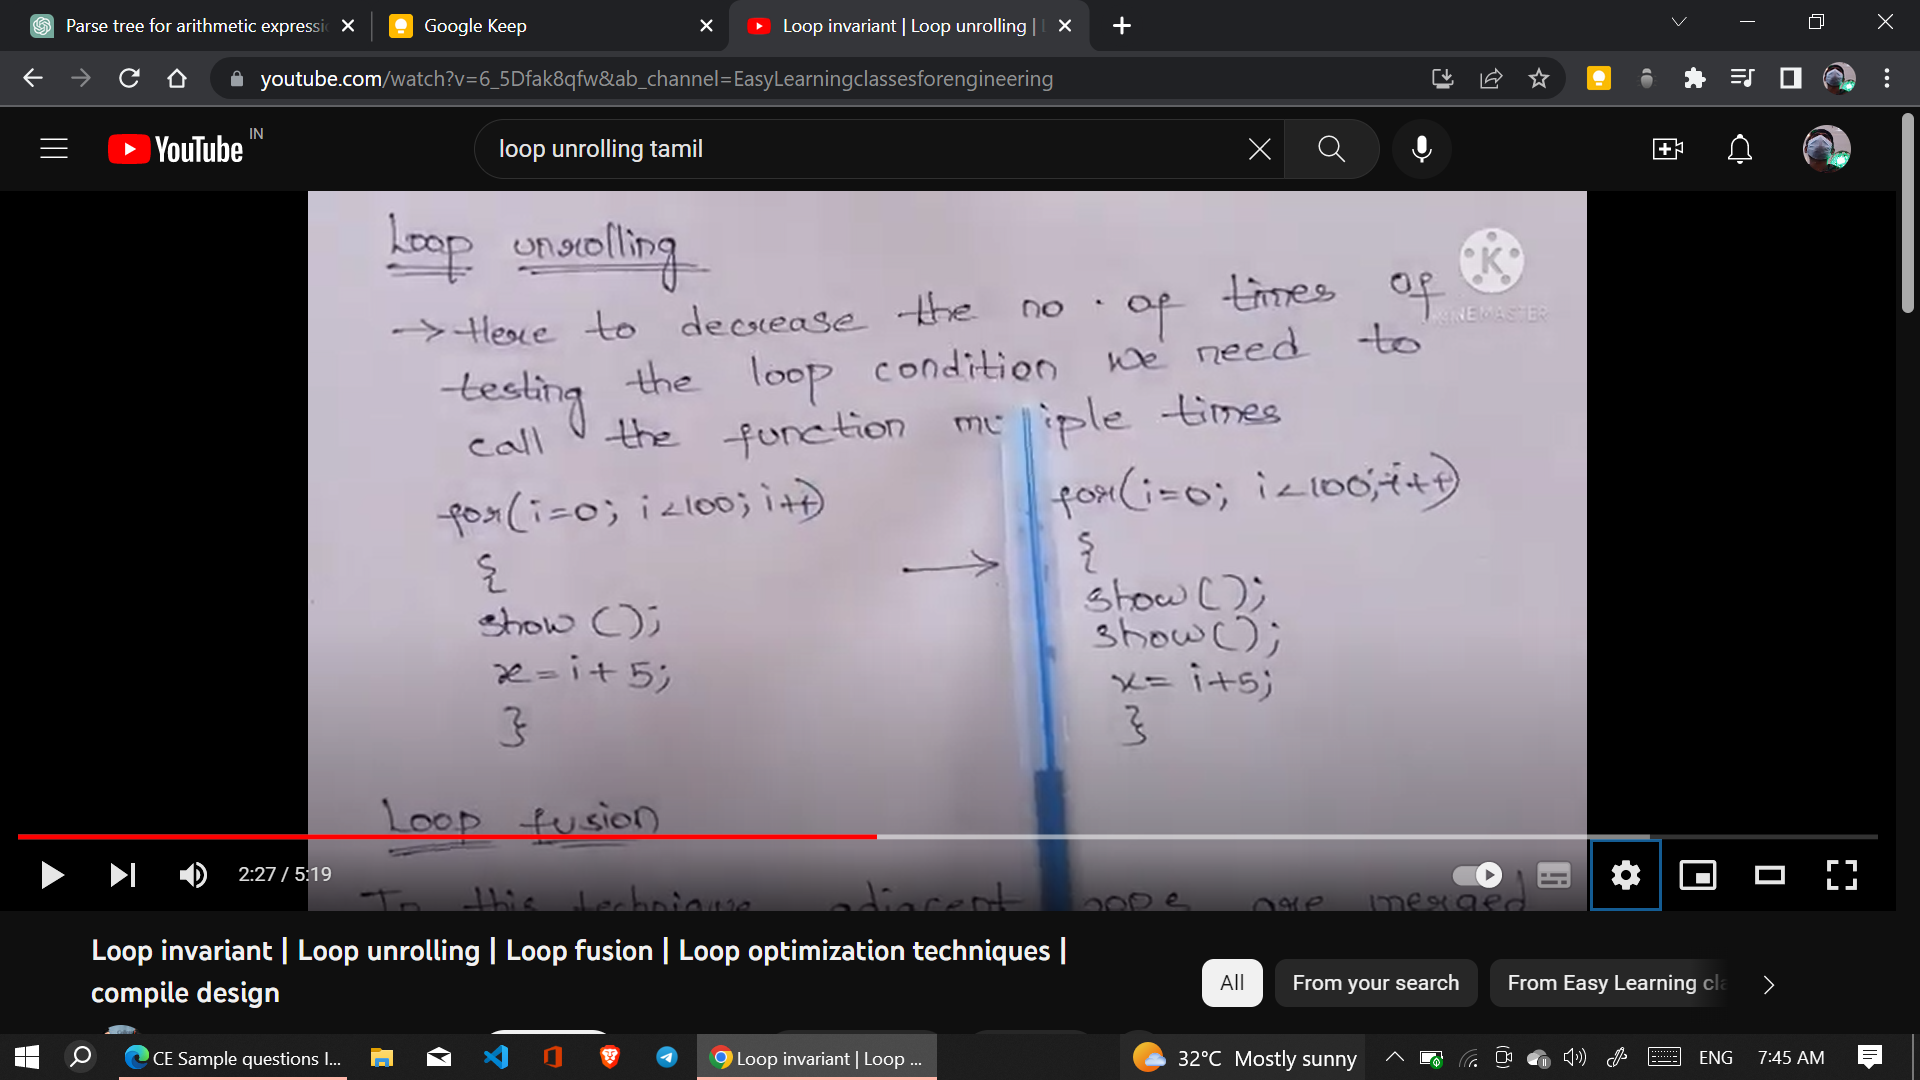 Parse tree for arithmetic expressi
Google Keep
Loop invariant | Loop unrolling |
youtube.com/watch?v=6_5Dfak8qfw&ab_channel=EasyLearningclassesforengineering
YouTube IN
loop unrolling tamil
Loop unrolling
K
→ Here to decrease the no. of times of
testing the loop condition we need to
call the function iple times
for(i=0; i<100; i++)
{
show();
x=i+5;
}
→
for(i=0; i<100; i++)
{
show();
show();
x= i+5;
}
Loop fusion
In this technique adjacent are merged
2:27 / 5:19
Loop invariant | Loop unrolling | Loop fusion | Loop optimization techniques |
compile design
All
From your search
From Easy Learning cla
CE Sample questions I...
Loop invariant | Loop ...
32°C Mostly sunny
ENG
7:45 AM